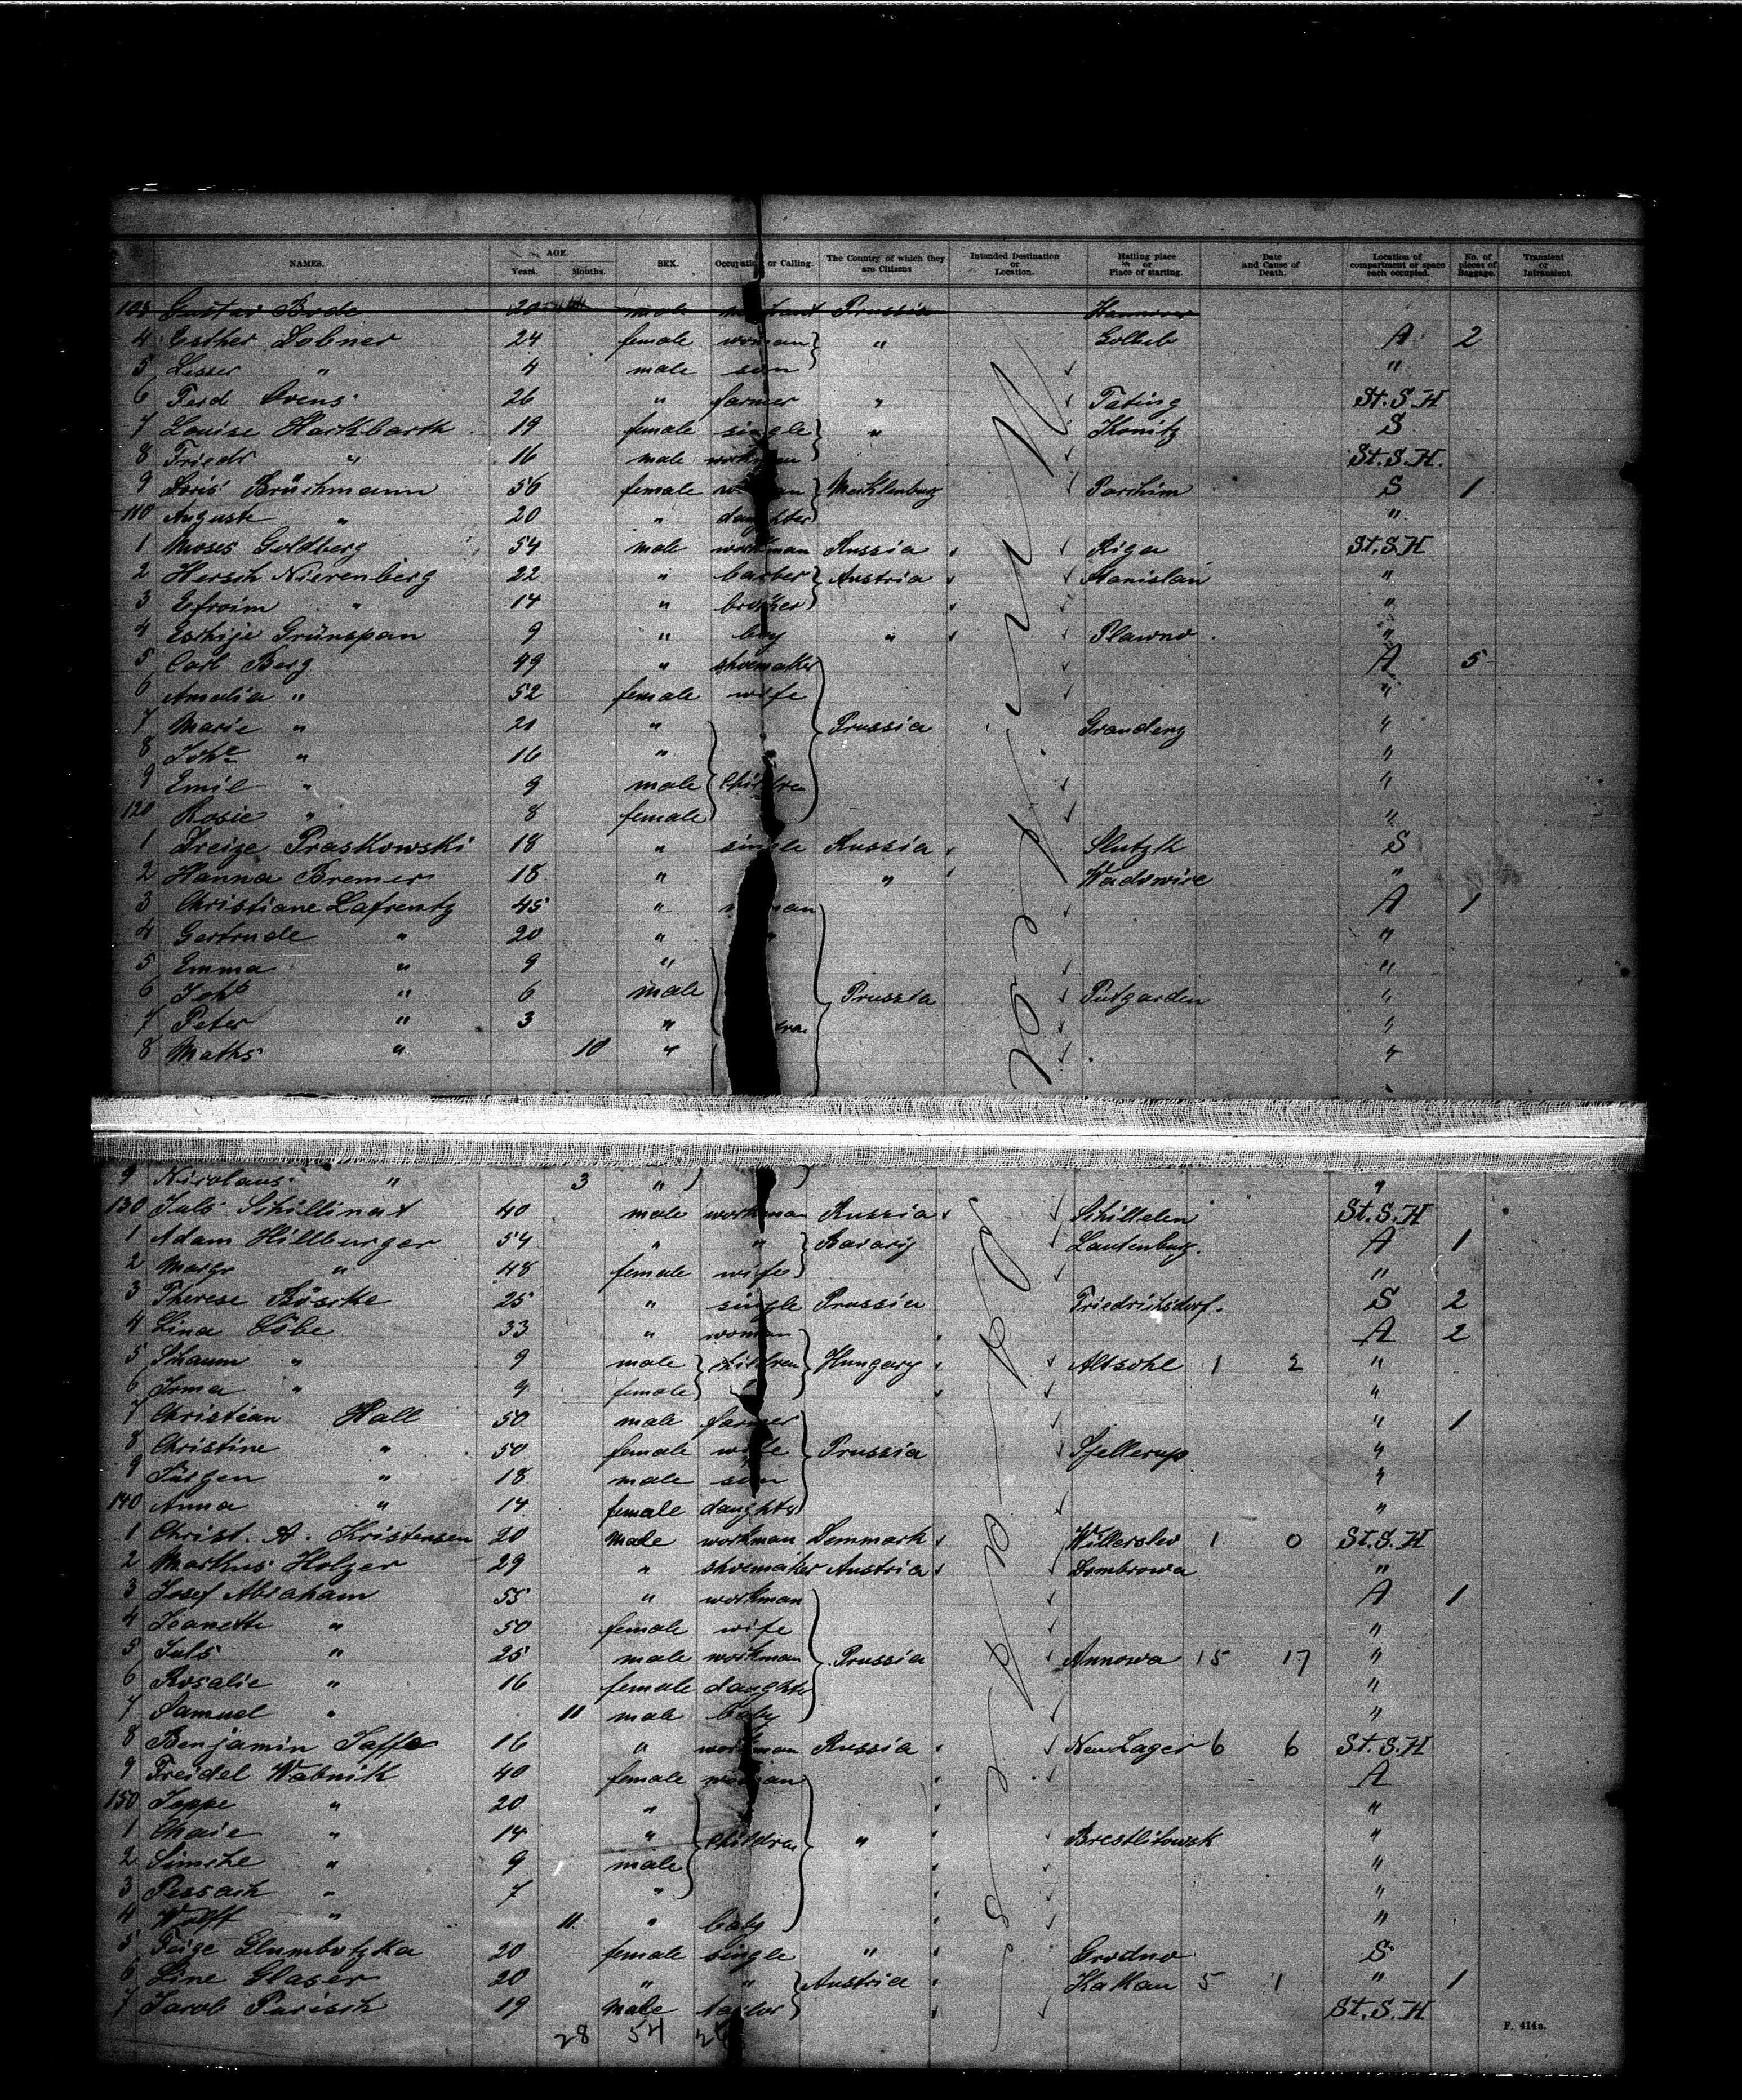 NAMES. AGE. Years. Months. SEX. Occupation or Calling. The Country of which they are Citizens Intended Destination or Location. Hailing place or Place of starting. Date and Cause of Death. Location of compartment or space each occupied. No. of pieces of Baggage. Transient or Intransient.
103 Gustav Bode 20 male Prussia Hannover
4 Esther Dobner 24 female woman " Gollub A 2
5 Lesser " 4 male son "
6 Ferd Ovens 26 " farmer " Tating St. S. H
7 Louise Hackbarth 19 female single " Konitz S
8 Friedr " 16 male workman St. S. H.
9 Doris Brüshmann 56 female woman Mecklenburg Parchim S 1
110 Auguste " 20 " daughter "
1 Moses Goldberg 54 male workman Russia Riga St. S. H
2 Hersch Nierenberg 22 " barber Austria Stanislau "
3 Efroim " 14 " brother "
4 Grünspan 9 " boy " Plawno "
5 Carl Berg 49 " shoemaker A 5
6 Amalia " 52 female wife "
7 Marie " 21 " Prussia Graudenz "
8 Joh<sup>e</sup> " 16 " "
9 Emil " 9 male children "
120 Rosie " 8 female "
1 Dreize Praskowski 18 " single Russia Slutzk S
2 Hanna Bremer 18 " " "
3 Christiane Lafrentz 45 " woman A 1
4 Gertrude " 20 " " "
5 Emma " 9 " "
6 Joh<sup>s</sup> " 6 male Prussia Putgarden "
7 Peter " 3 " "
8 Maths " 10 " "
9 Nicolaus " 3 " "
130 Juls Schillinat 40 male workman Russia Schillelen St. S. H
1 Adam Hillburger 54 " " Bavary Lautenburg. A 1
2 Margr " 48 female wife "
3 Therese 25 " single Prussia Friedrichsdorf. S 2
4 Lina Löbe 33 " woman A 2
5 " 9 male children Hungary Altsohl 1 2 "
6 Irma " 9 female "
7 Christian Hall 50 male farmer " 1
8 Christine " 50 female wife Prussia Sjellerup "
9 Jürgen " 18 male son "
140 Anna " 14 female daughter "
1 Christ. A. Kristensen 20 male workman Denmark Willerslev 1 0 St. S. H
2 Marthus Holzer 29 " shoemaker Austria Dombrowa "
3 Josef Abraham 55 " workman A 1
4 Jeanette " 50 female wife "
5 Juls " 25 male workman Prussia Annowa 15 17 "
6 Rosalie " 16 female daughter "
7 Samuel " 11 male baby "
8 Benjamin Jaffe 16 " workman Russia Neu Lager 6 6 St. S. H
9 Freidel Wobnik 40 female woman A
150 Joppe " 20 " "
1 Chaie " 14 " children " Brestlitowsk "
2 Simche " 9 male "
3 Pessach " 7 " "
4 Wolff " 11 " baby "
5 Feige Glumbotzka 20 female single " Grodno S
6 Line Glaser 20 " " Austria Kakau 5 1 " 1
7 Jacob Parisch 19 male taylor St. S. H
28 54
F. 414a.